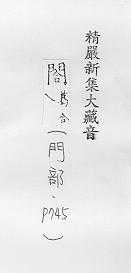 精嚴新集大藏音
閣 昔合（門部·P745）